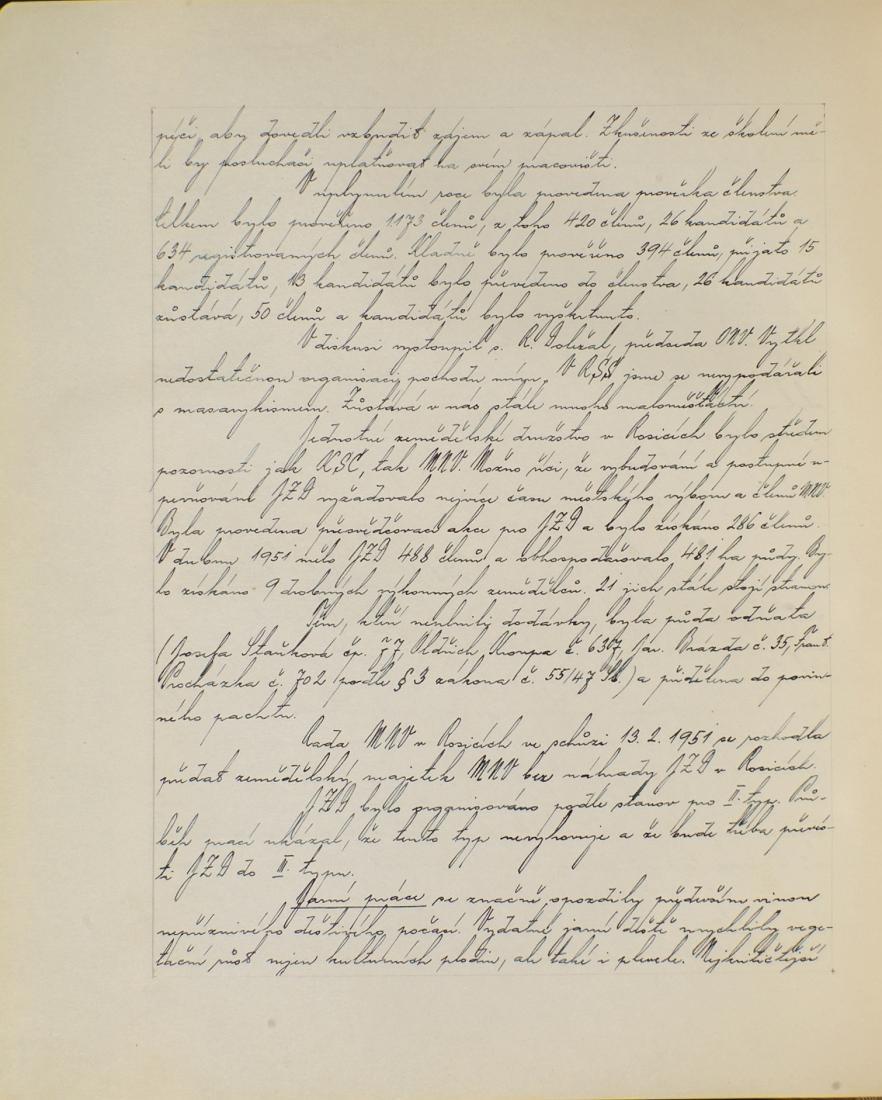 péči, aby dovedli vzbudit zájem a zápal. Zkušenosti ze školení mě-
li by posluchači uplatňovat na svém pracovišti.
V uplynulém roce byla provedena prověrka členstva.
Celkem bylo prověřeno 1173 členů, z toho 420 členů, 26 kandidátů a
634 registrovaných členů. Kladně bylo prověřeno 394 členů, přijato 15
kandidátů, 13 kandidátů bylo převedeno do členstva, 26 kandidátů
zůstává, 50 členů a kandidátů bylo vyškrtnuto.
V diskusi vystoupil s. R. Doležal, předseda ONV. Vytkl
nedostatečnou organisaci pochodu míru. V RSŠ jsme se nevypořádali
s masarykismem. Zůstává v nás stále mnoho maloměšťáctví.
Jednotné zemědělské družstvo v Rosicích bylo středem
pozornosti jak KSČ, tak MNV. Možno říci, že vybudování a postupné u-
pevňování JZD vyžadovalo nejvíce času městského výboru a členů MNV.
Byla provedena přesvědčovací akce pro JZD a bylo získáno 286 členů.
V dubnu 1951 mělo JZD 488 členů a obhospodařovalo 481 ha půdy. By-
lo získáno 9 drobných výkonných zemědělců. 21 jich stále stojí stranou.
Těm, kteří neplnili dodávky, byla půda odňata
(Josefa Staňková čp. 77, Oldřich Kroupa č. 637, Jar. Brázda č. 35, Frant.
Procházka č. 702 podle § 3 zákona č. 55/47 Sb.) a přidělena do povin-
ného pachtu.
Rada MNV v Rosicích ve schůzi 13. 2. 1951 se rozhodla
předat zemědělský majetek MNV bez náhrady JZD v Rosicích.
JZD bylo organisováno podle stanov pro II. typ. Prů-
běh prací ukázal, že tento typ nevyhovuje a že bude třeba převés-
ti JZD do III. typu.
Jarní práce se značně opozdily především vinou
nepříznivého deštivého počasí. Vydatné jarní deště urychlily vege-
tační růst nejen kulturních plodin, ale také i plevele. Nejkritičtější